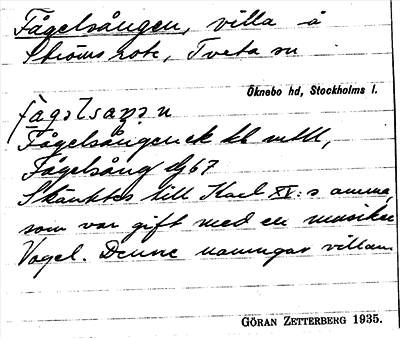 Fågelsången, villa å
Ströms hote, Tveta sn
Öknebo hd, Stockholms l.
Fågelsången ek bl mtll,
Fågelsång dj 67
Skänktes till Karl XV:s amma,
som var gift med en musiker
Vogel. Denne namngav villan
GÖRAN ZETTERBERG 1935.